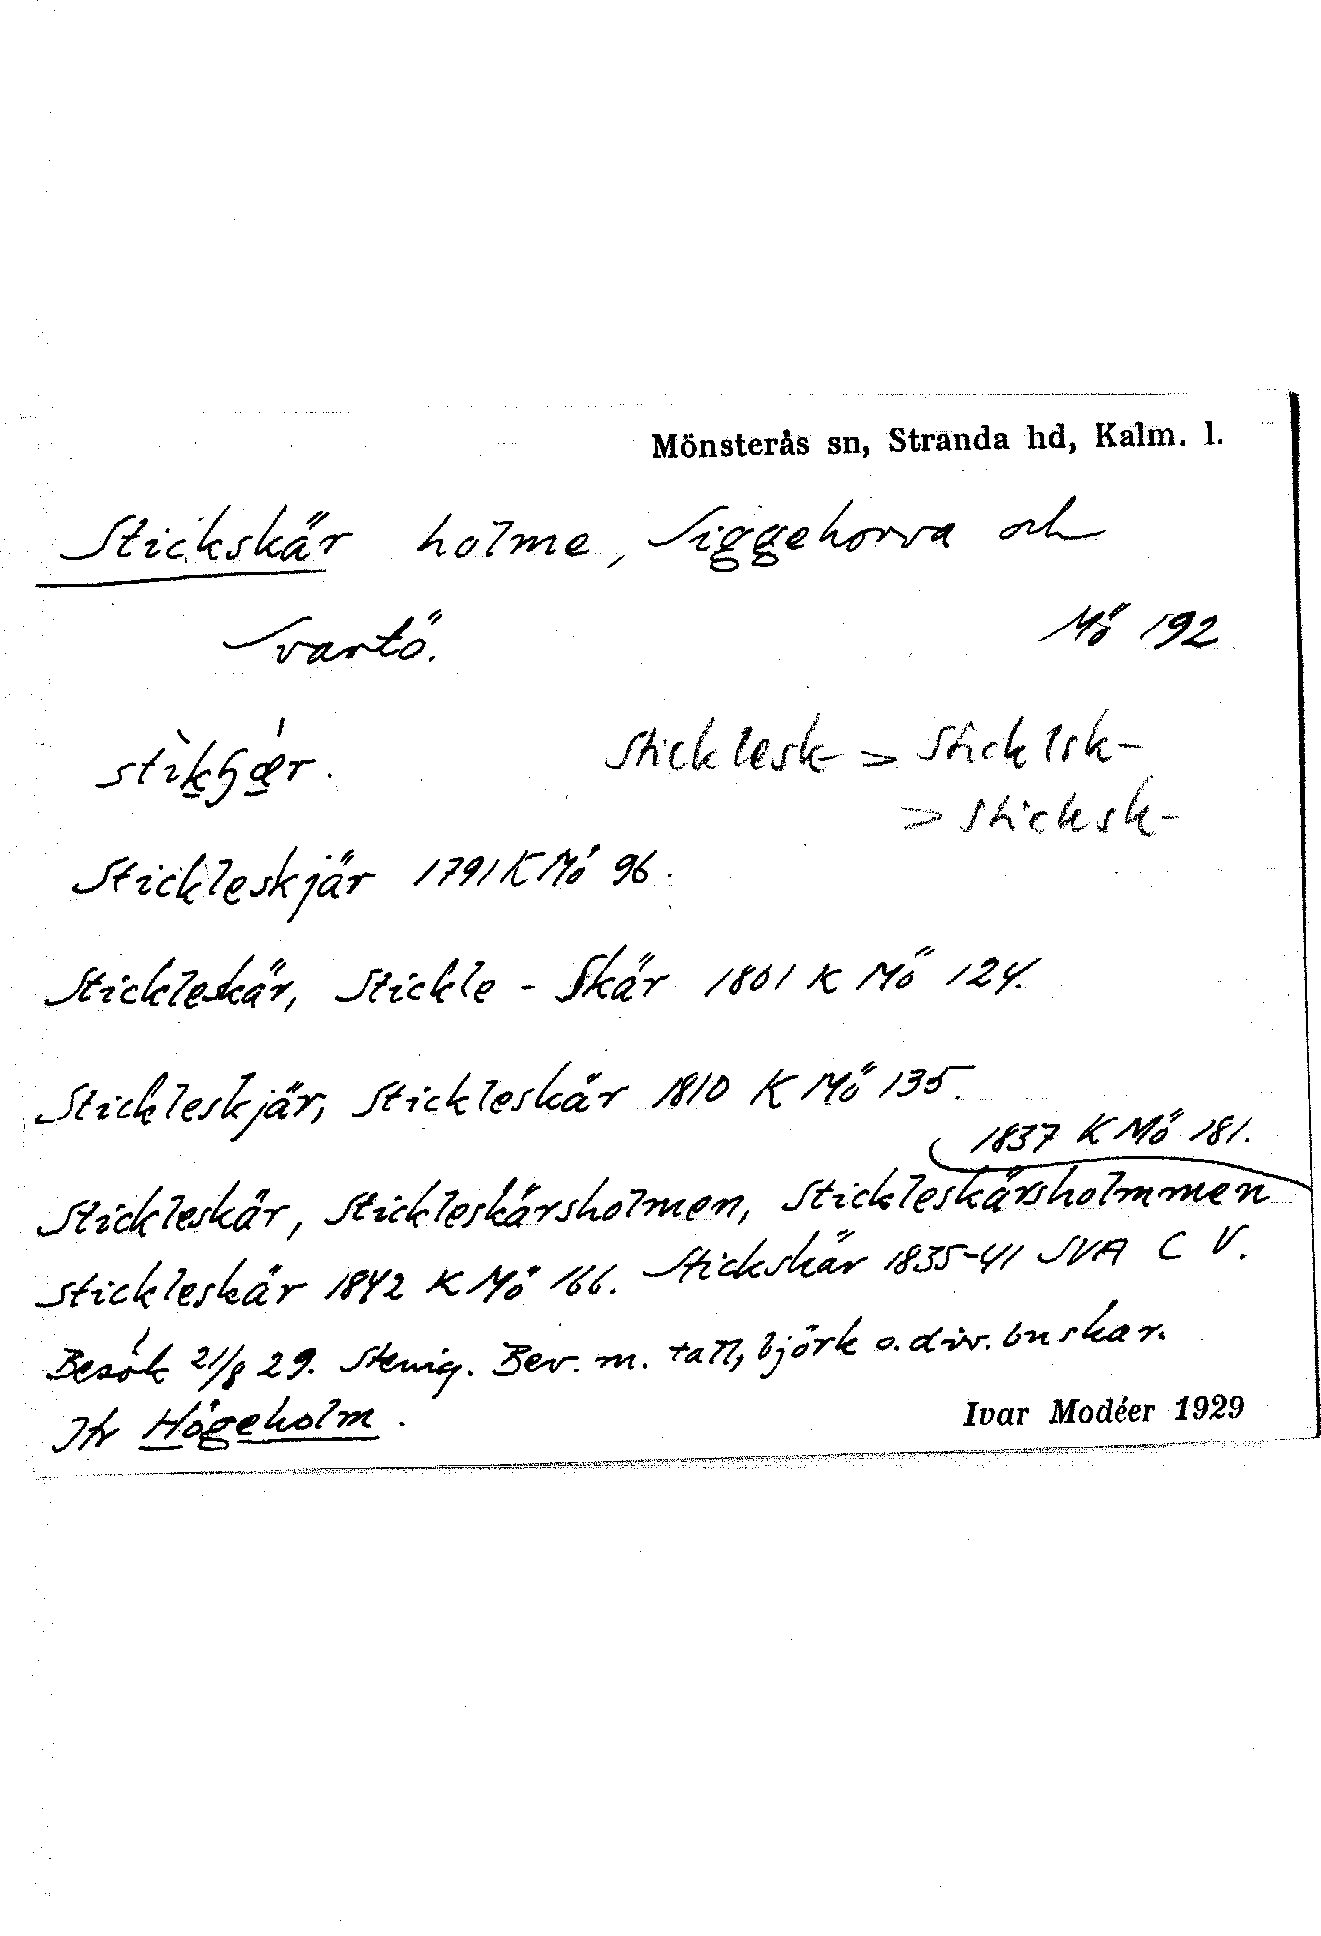 Mönsterås sn, Stranda hd, Kalm. l.
Stickskär holme, Siggehorva och
Svartö. Mö 192
Sticklesk- > Sticklsk-
> Sticksk-
Stickleskjär 1791 K Mö 96.
Stickleskär, Stickle - Skär 1801 K Mö 124.
Stickleskjär, Stickleskär 1810 K Mö 135.
1837 K Mö 181.
Stickleskär, Stickleskärsholmen, Stickleskärsholmmen
Stickleskär 1842 K Mö 166. Stickskär 1835-41 SVA C V.
Besök 21/8 29. Stenig. Bev. m. tall, björk o. div. buskar.
Jfr Högeholm.
Ivar Modéer 1929